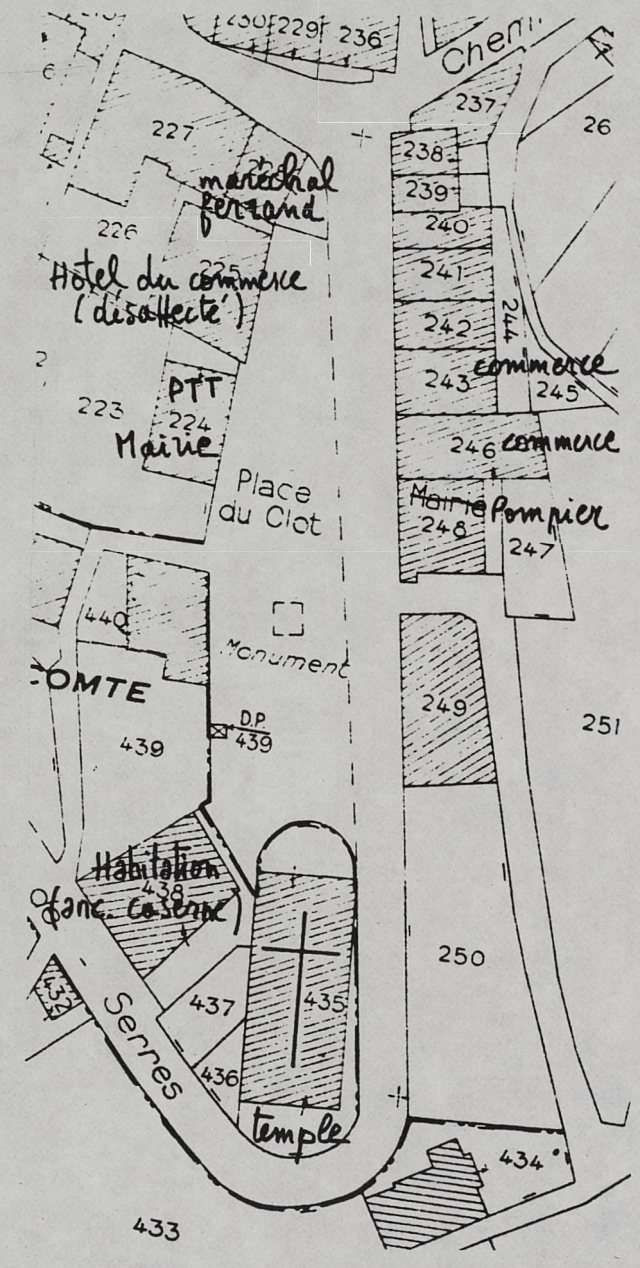 230
229
236
Chem.
6
237
26
227
238
maréchal
ferrand
239
240
226
225
241
Hôtel du commerce
(désaffecté)
242
244
2
PTT
243
commerce
245
223
224
Mairie
246
commerce
Place
du Clot
Mairie
248
Pompier
247
440
Monument
COMTE
249
251
D.P.
439
439
Habitation
438
(anc. caserne)
250
432
437
435
Serres
436
temple
434
433